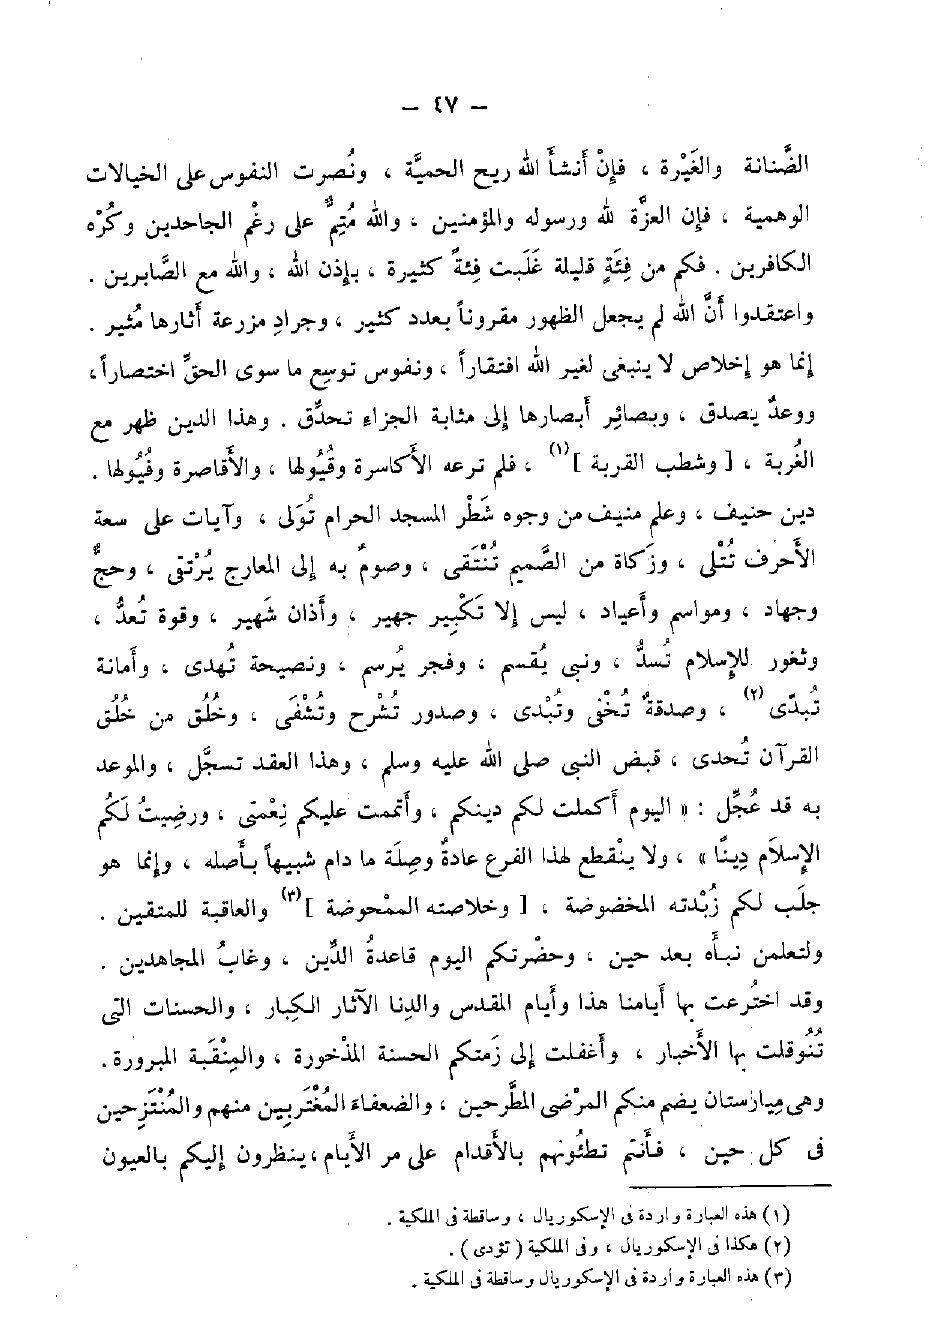 — ٤٧ —
الضَّنانة والغَيْرة ، فإنْ أنشأ الله ريح الحميَّة ، ونُصرت النفوس على الخيالات
الوهمية ، فإن العزَّة لله ورسوله والمؤمنين ، والله مُتِمٌّ على رغْم الجاحدين وكُرْه
الكافرين . فكم من فِئَةٍ قليلة غَلَبت فِئةً كثيرة ، بإذن الله ، والله مع الصَّابرين .
واعتقدوا أنَّ الله لم يجعل الظهور مقروناً بعدد كثير ، وجرادِ مزرعة أثارها مُثير .
إنما هو إخلاص لا ينبغى لغير الله افتقاراً ، ونفوس توسع ما سوى الحقِّ اختصاراً ،
ووعدٌ يصدق ، وبصائر أبصارها إلى مثابة الجزاء تحدِّق . وهذا الدين ظهر مع
الغُربة ، [ وشطب القربة ](١) ، فلم ترعه الأكاسرة وقُيُولها ، والأقاصرة وفُيُولها .
دين حنيف ، وعلم منيف من وجوه شَطْر المسجد الحرام تُوَلى ، وآيات على سعة
الأحرف تُتْلى ، وزَكاة من الصَّميم تُنْتَقى ، وصومٌ به إلى المعارج يُرْتقى ، وحجٌ
وجهاد ، ومواسم وأعياد ، ليس إلا تَكْبِير جهير ، وأذان شَهير ، وقوة تُعدُّ ،
وثغور للإسلام تُسدُّ ، ونبى يُقسم ، وفجر يُرسم ، ونصيحة تُهدى ، وأمانة
تُبدّى (٢) ، وصدقةٌ تُخْفى وتُبْدى ، وصدور تُشْرح وتُشْفَى ، وخُلُق من خُلُق
القرآن تُحدى ، قبض النبى صلى الله عليه وسلم ، وهذا العقد تسجَّل ، والموعد
به قد عُجِّل : « اليوم أكملت لكم دينكم ، وأتممت عليكم نِعْمتى ، ورضِيتُ لَكُم
الإسلَام دِينًا » ، ولا ينْقطع لهذا الفرع عادةُ وصِلَة ما دام شبيهاً بأصله ، وإنما هو
جلَب لكم زُبْدته المخضوضة ، [ وخلاصته الممحوضة ](٣) والعاقبة للمتقين .
ولتعلمن نبأَه بعد حين ، وحضْرتكم اليوم قاعدةُ الدِّين ، وغابُ المجاهدين .
وقد اختُرعت بها أيامنا هذا وأيام المقدس والدنا الآثار الكِبار ، والحسنات التى
تُنُوقلت بها الأَخبار ، وأغفلت إلى زَمنكم الحسنة المذْخورة ، والمِنْقَبة المبرورة .
وهى مِيارَستان يضم منكم المرْضى المطَّرحين ، والضعفاء المُغْتَرِبين منهم والمُنْتَزِحين
فى كل حين ، فأنتم تطئُونهم بالأقدام على مر الأيام ، ينظرون إليكم بالعيون
(١) هذه العبارة واردة فى الإسكوريال ، وساقطة فى الملكية .
(٢) هكذا فى الإسكوريال ، وفى الملكية ( تؤدى ) .
(٣) هذه العبارة واردة فى الإسكوريال وساقطة فى الملكية .